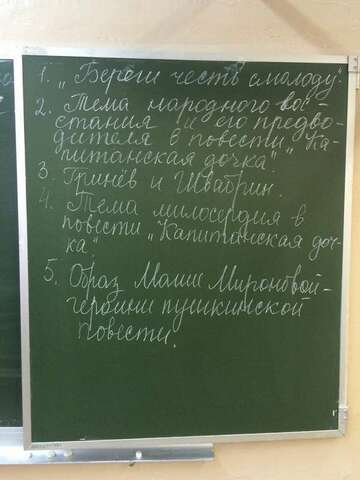 1. „Береги честь смолоду".
2. Тема народного вос-
стания и его предво-
дителя в повести „Ка-
питанская дочка".
3. Гринёв и Швабрин.
4. Тема милосердия в
повести „Капитанская доч-
ка".
5. Образ Маши Мироновой-
героини пушкинской
повести.